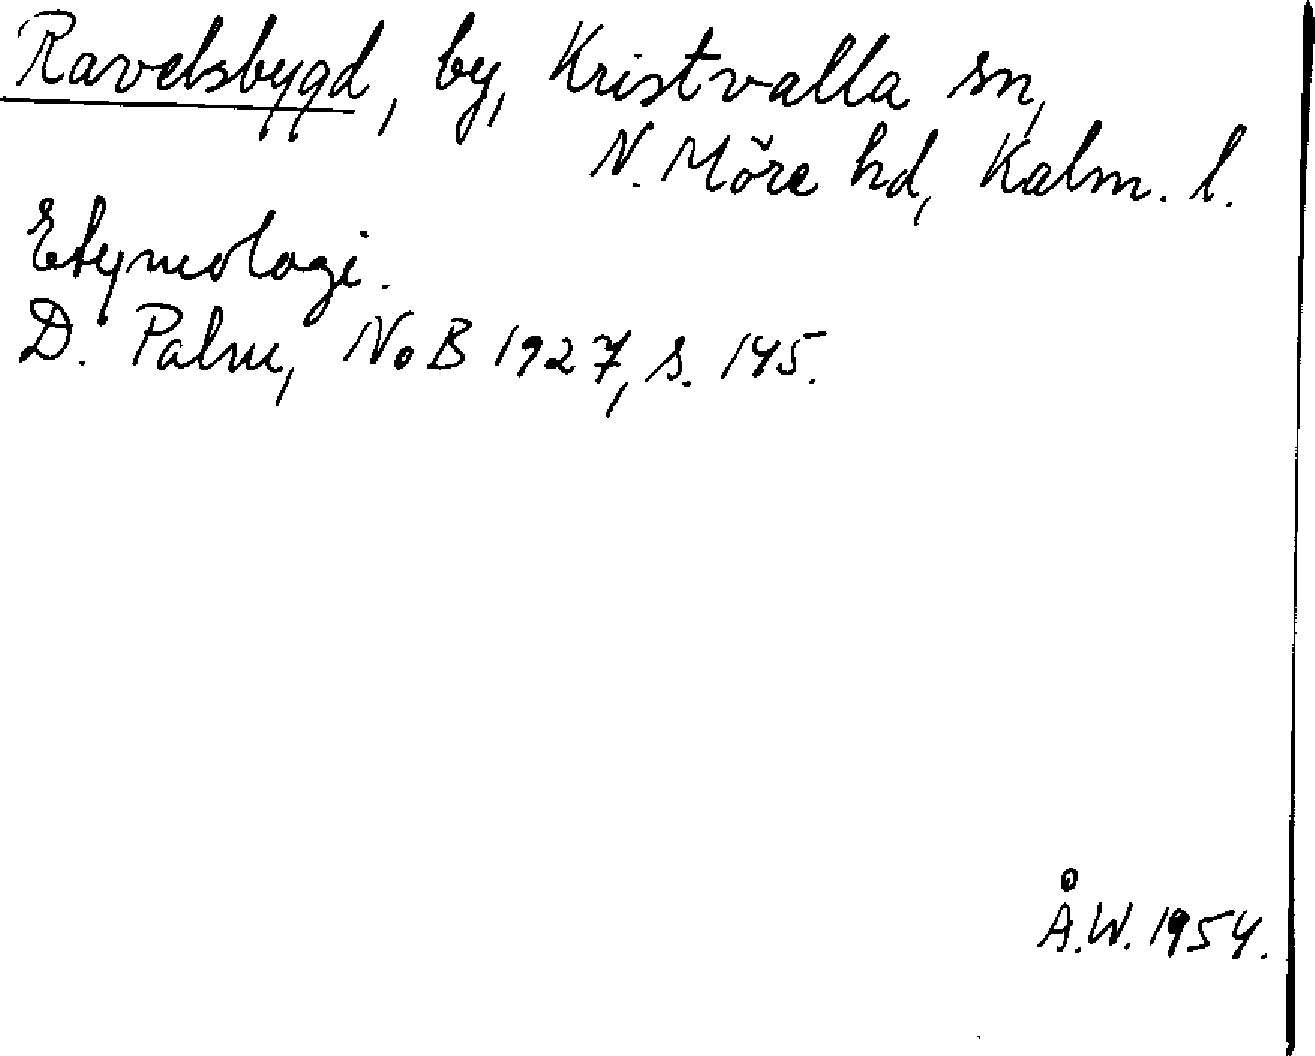 Ravelsbygd, by, Kristvalla sn,
N. Möre hd, Kalm. l.
Etymologi.
D. Palm, NoB 1927, s. 145.
Å.W. 1954.